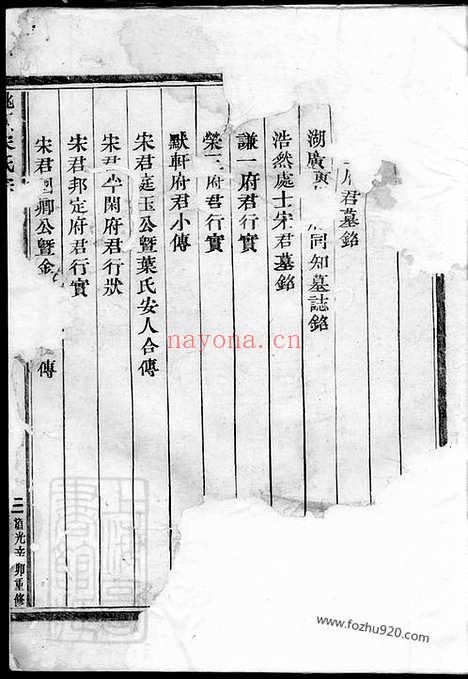 府君墓銘
湖廣 同知墓誌銘
浩然處士宋君墓銘
謙一府君行實
榮三府君行實
默軒府君小傳
宋君庭玉公暨葉氏安人合傳
宋君 閑府君行狀
宋君邦定府君行實
宋君 卿公暨金 傳
氏宗
二 道光辛卯重修
nayona.cn
www.fozhu920.com